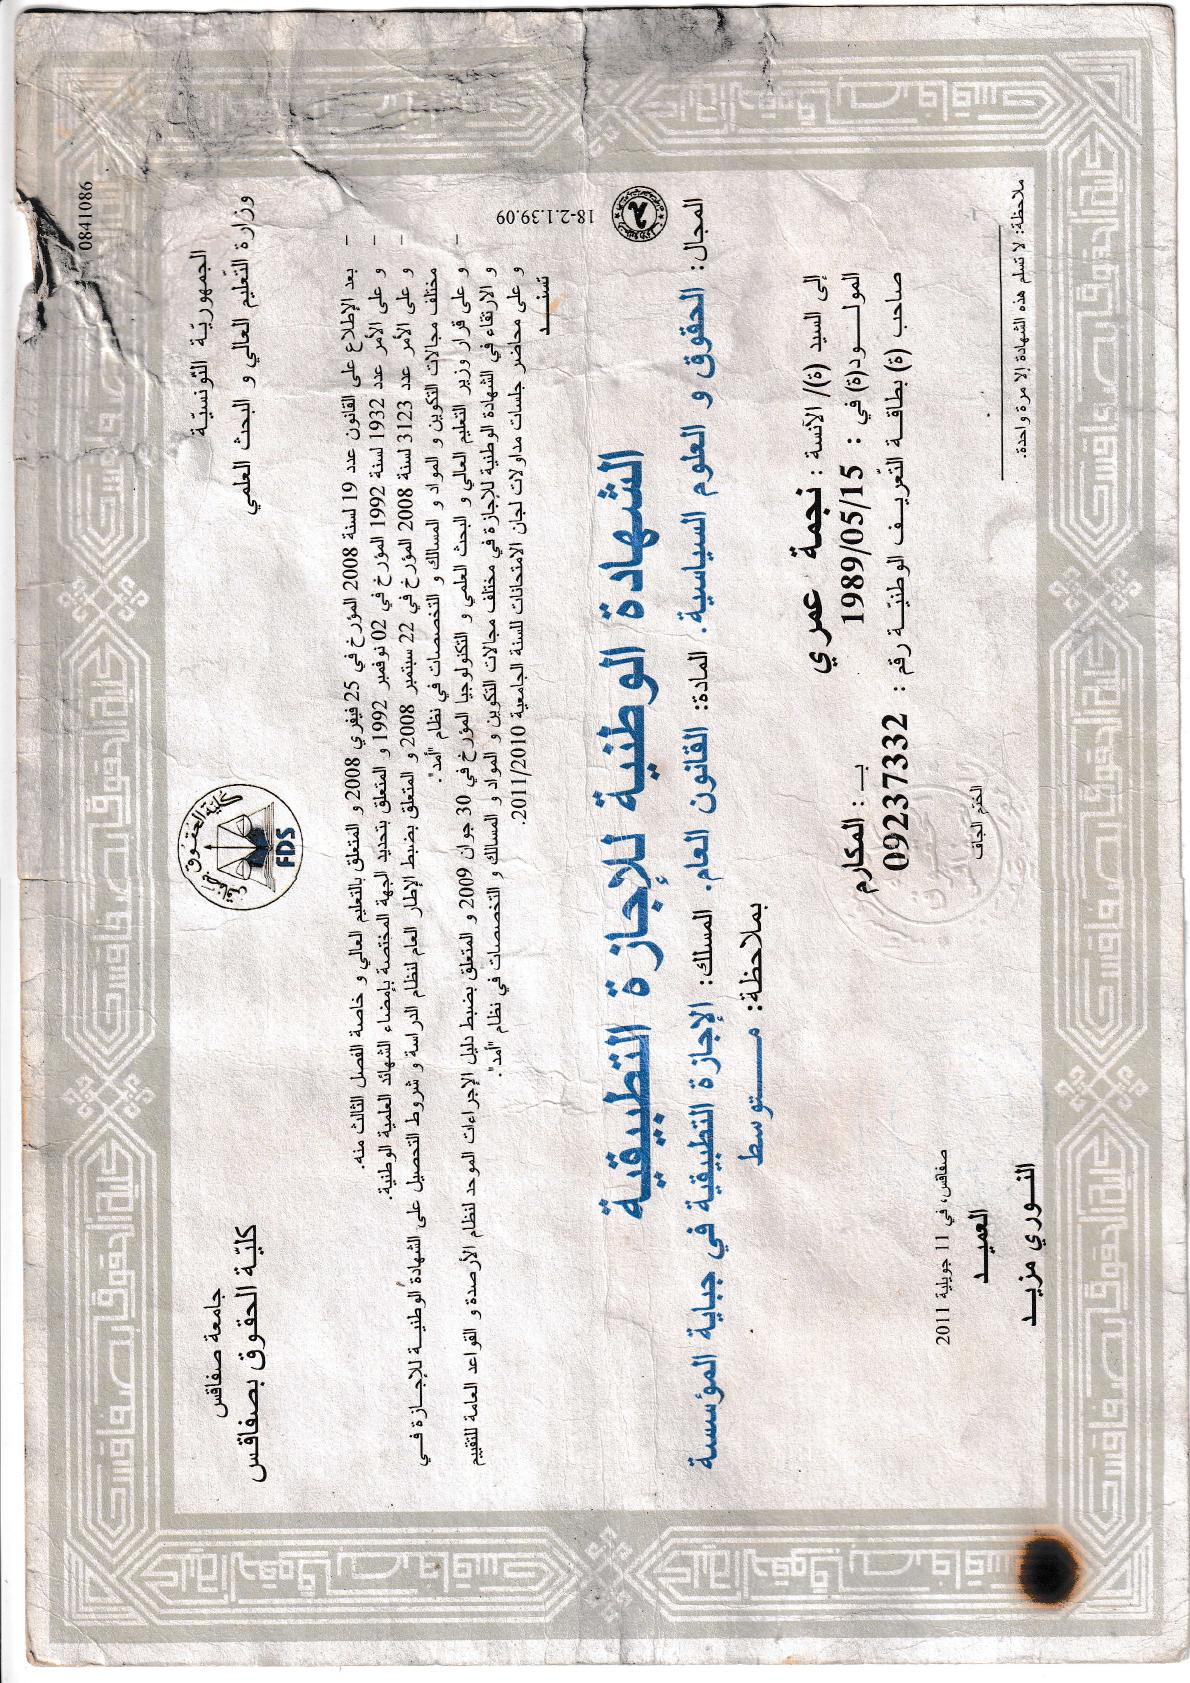 0841086
الجمهورية التونسيّة
وزارة التّعليم العالي و البحث العلمي
جامعة صفاقس
كليّة الحقوق بصفاقس
كلية الحقوق بصفاقس
FDS
- بعد الإطلاع على القانون عدد 19 لسنة 2008 المؤرخ في 25 فيفري 2008 و المتعلق بالتعليم العالي و خاصة الفصل الثالث منه.
- و على الأمر عدد 1932 لسنة 1992 المؤرخ في 02 نوفمبر 1992 و المتعلق بتحديد الجهة المختصة بإمضاء الشهائد العلمية الوطنية.
- و على الأمر عدد 3123 لسنة 2008 المؤرخ في 22 سبتمبر 2008 و المتعلق بضبط الإطار العام لنظام الدراسة و شروط التحصيل على الشهادة الوطنيـة للإجـازة فـي
مختلف مجالات التكوين و المواد و المسالك و التخصصات في نظام "أمد".
- و على قرار وزير التعليم العالي و البحث العلمي و التكنولوجيا المؤرخ في 30 جوان 2009 و المتعلق بضبط دليل الإجراءات الموحد لنظام الأرصدة و القواعد العامة للتقييم
و الارتقاء في الشهادة الوطنية للإجازة في مختلف مجالات التكوين و المواد و المسالك و التخصصات في نظام "أمد".
و على محاضر جلسات مداولات لجان الامتحانات للسنة الجامعية 2011/2010.
تسنـد
18-2.1.39.09
الشهادة الوطنية للإجازة التطبيقية
المجال: الحقوق و العلوم السياسية. المادة: القانون العام. المسلك: الإجازة التطبيقية في جباية المؤسسة
بملاحظة: متوسط
إلى السيد (ة)/ الآنسة : نجمة عمري
المولـود(ة) في : 1989/05/15 بـ : المكارم
صاحب (ة) بطاقـة التّعريـف الوطنيّـة رقم : 09237332
صفاقس، في 11 جويلية 2011
العميـد
النـوري مزيـد
الختم الجاف
ملاحظة: لا تسلم هذه الشهادة إلا مرة واحدة.